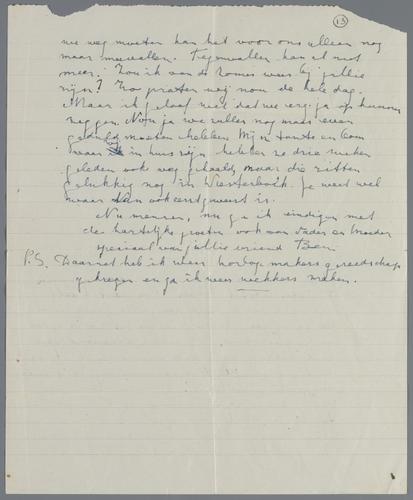 13
we weg moeten kan het voor ons alleen nog
maar meevallen. Tegenvallen kan het niet
meer. Zou ik van de zomer weer bij jullie
zijn? Zo praten wij nou de hele dag.
Maar ik geloof niet dat we erg ja op kunnen
zeggen. Nou ja we zullen nog maar even
geduld moeten hebben. Mijn tante en oom
waar ik in huis zijn hebben ze drie weken
geleden ook weg gehaald, maar die zitten
gelukkig nog in Westerbork. Je weet wel
waar Dan ook eerst geweest is.
Nu menschen, nu ga ik eindigen met
de hartelijke groeten ook van Vader en Moeder
speciaal van jullie vriend Ben
P.S. Daarnet heb ik weer horlogemakers gereedschap
gekregen en ga ik weer wekkers maken.